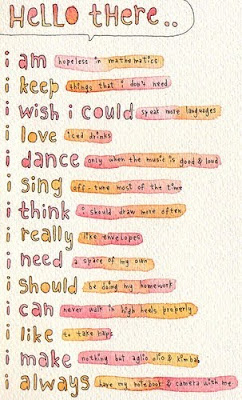 Hello there..
i am hopeless in mathematics
i keep things that i don't need
i wish i could speak more languages
i love iced drinks
i dance only when the music is good & loud
i sing off-tune most of the time
i think i should draw more often
i really like envelopes
i need a space of my own
i should be doing my homework
i can never walk in high heels properly
i like to take naps
i make nothing but aglio olio & kimbab
i always have my notebook & camera with me